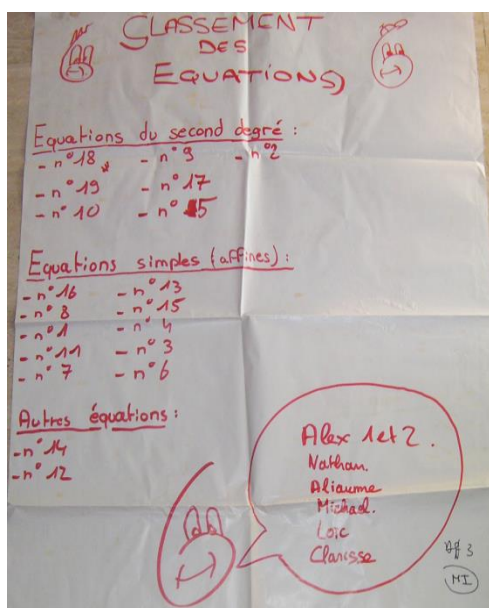 CLASSEMENT
DES
EQUATIONS
Equations du second degré :
- n°18 - n°9 - n°2
- n°19 - n°17
- n°10 - n°5
Equations simples (affines) :
- n°16 - n°13
- n°8 - n°15
- n°1 - n°4
- n°11 - n°3
- n°7 - n°6
Autres équations :
- n°14
- n°12
Alex 1 et 2.
Nathan.
Aliaume
Michael.
Loïc
Clarisse
3
MI